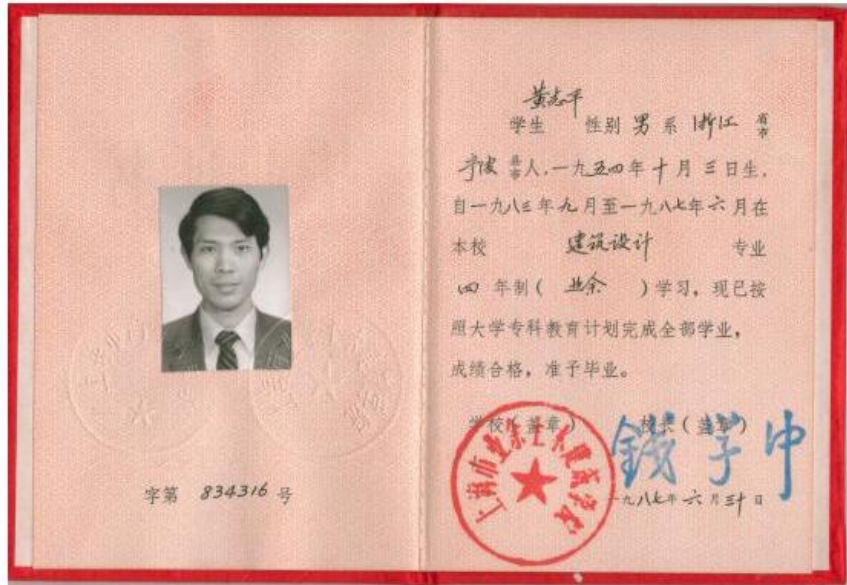 字第 834316 号
黄志平
学生 性别 男 系 浙江 省市
宁波 县市 人,一九五四年十月三日生,
自一九八三年九月至一九八七年六月在
本校 建筑设计 专业
四 年制( 业余 )学习,现已按
照大学专科教育计划完成全部学业,
成绩合格,准予毕业。
学校(盖章) 校长(盖章)
上海市业余土木建筑学院
钱学中
一九八七年六月三十日